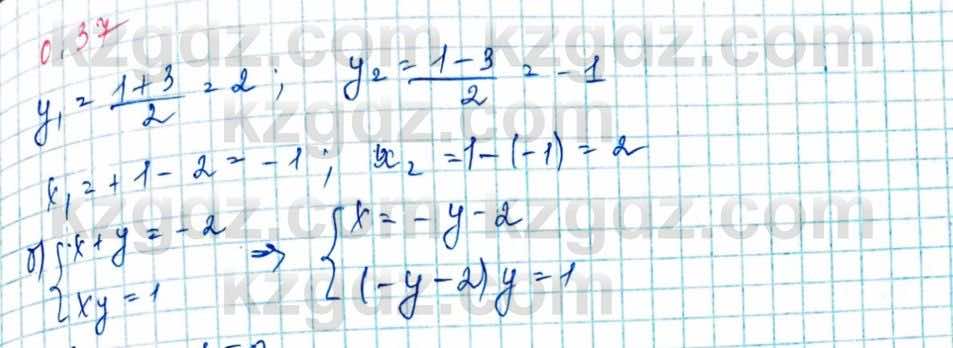 0.37
y₁ = (1+3)/2 = 2; y₂ = (1-3)/2 = -1
x₁ = +1-2 = -1; x₂ = 1-(-1) = 2
б) { x+y = -2 ⇒ { x = -y-2
{ xy = 1 { (-y-2)y = 1
kzgdz.com
kzgdz.com
kzgdz.com
kzgdz.com
kzgdz.com
kzgdz.com